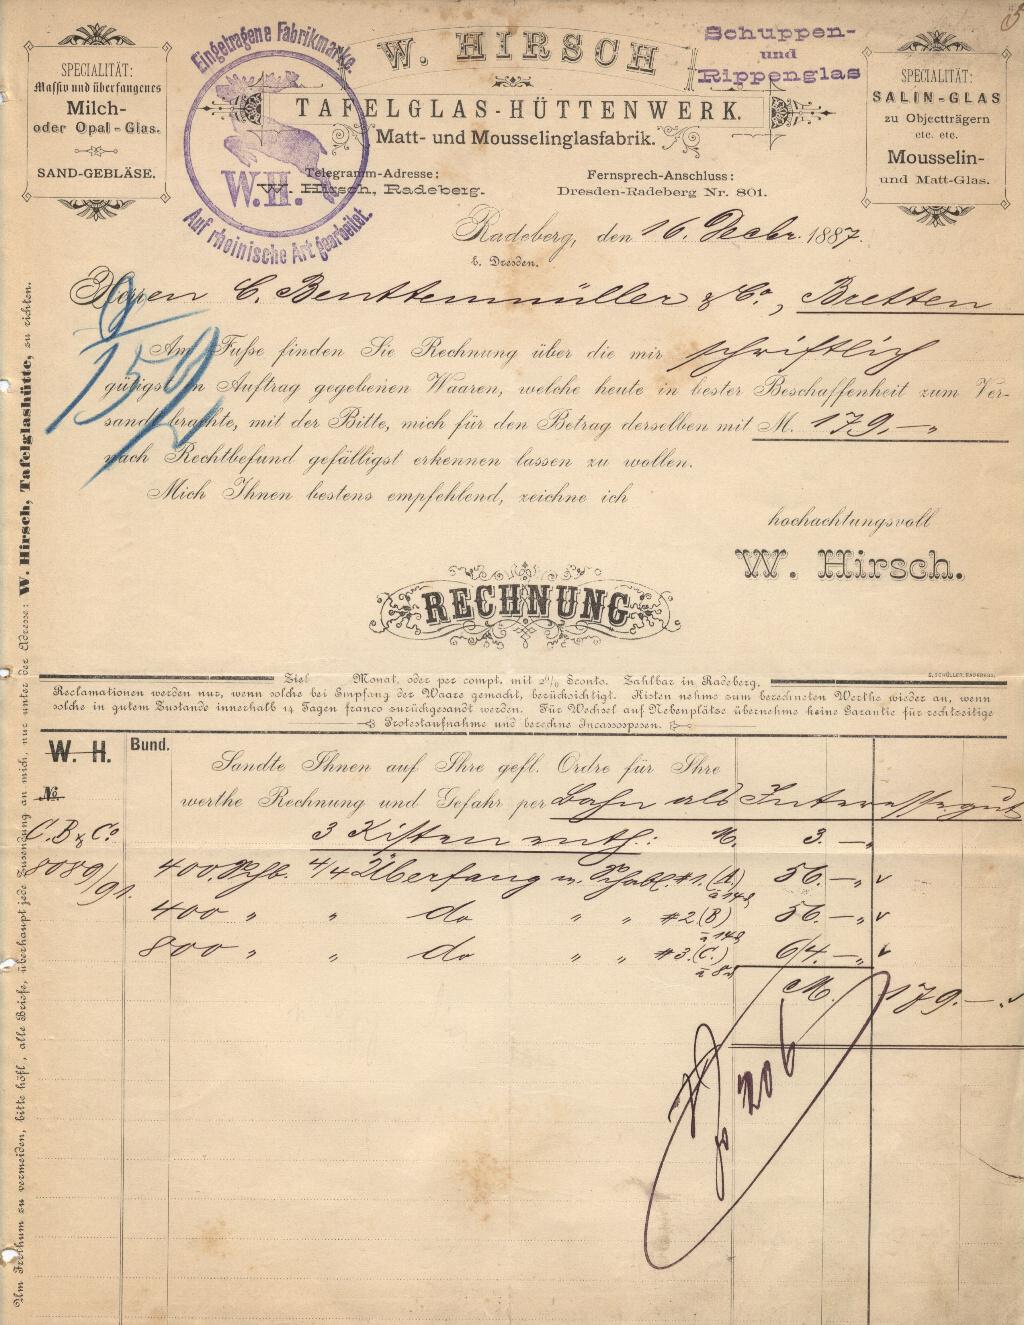 SPECIALITÄT:
Massiv und überfangenes
Milch-
oder Opal-Glas.
SAND-GEBLÄSE.
Eingetragene Fabrikmarke.
W.H.
Auf rheinische Art gearbeitet.
W. HIRSCH
TAFELGLAS-HÜTTENWERK.
Matt- und Mousselinglasfabrik.
Telegramm-Adresse:
W. Hirsch, Radeberg.
Fernsprech-Anschluss:
Dresden-Radeberg Nr. 801.
Schuppen-
und
Rippenglas
SPECIALITÄT:
SALIN-GLAS
zu Objectträgern
etc. etc.
Mousselin-
und Matt-Glas.
Radeberg, den 16. Decbr. 1887.
b. Dresden.
Herren C. Beuttenmüller & Co, Bretten
Am Fuße finden Sie Rechnung über die mir schriftlich
gütigst in Auftrag gegebenen Waaren, welche heute in bester Beschaffenheit zum Ver-
sandt brachte, mit der Bitte, mich für den Betrag derselben mit M. 179.—„
nach Rechtbefund gefälligst erkennen lassen zu wollen.
Mich Ihnen bestens empfehlend, zeichne ich
hochachtungsvoll
W. Hirsch.
RECHNUNG
Ziel Monat, oder per compt. mit 2% Sconto. Zahlbar in Radeberg.
E. SCHÜLLER, RADEBERG.
Reclamationen werden nur, wenn solche bei Empfang der Waare gemacht, berücksichtigt. Kisten nehme zum berechneten Werthe wieder an, wenn
solche in gutem Zustande innerhalb 14 Tagen franco zurückgesandt werden. Für Wechsel auf Nebenplätze übernehme keine Garantie für rechtzeitige
Protestaufnahme und berechne Incassospesen.
W. H. Bund.
Sandte Ihnen auf Ihre gefl. Ordre für Ihre
№ werthe Rechnung und Gefahr per Bahn als Interessegut
C. B & Co 3 Kisten enth.: M. 3.—„
8089/91. 400. Schb. 4/4 Überfang m. #1. (A.) à 14₰ 56.—„
400 „ „ do „ „ #2. (B) à 14₰ 56.—„
800 „ „ do „ „ #3. (C.) à 8₰ 64.—„
M. 179.—„
206
Um Irrthum zu vermeiden, bitte höfl., alle Briefe, überhaupt jede Zusendung an mich, nur unter der Adresse: W. Hirsch, Tafelglashütte, zu richten.